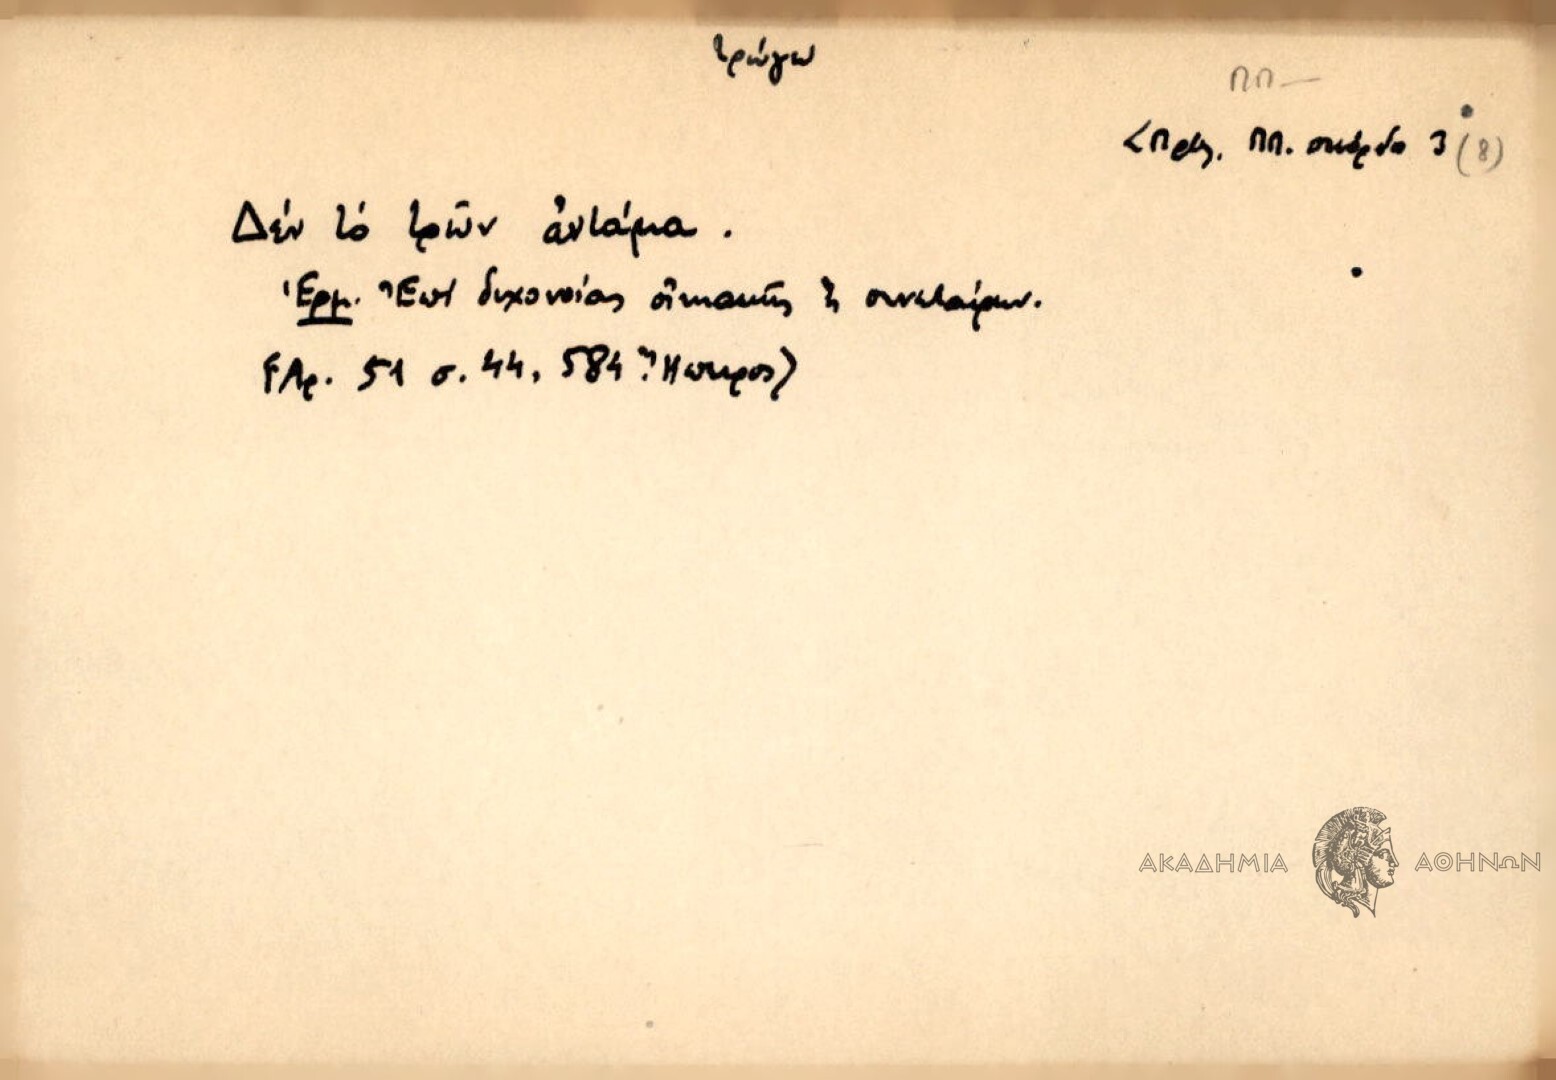 τρώγω
ΠΠ—
<Πρβ. ΠΠ. σκόρδο 3 (8)
Δέν τό τρῶν ἀντάμα.
Ἑρμ. Ἐπί διχονοίας οἰκιακῆς ἢ συνεταίρων.
(Ἀρ. 51 σ. 44, 584 Ἤπειρος)
ΑΚΑΔΗΜΙΑ ΑΘΗΝΩΝ